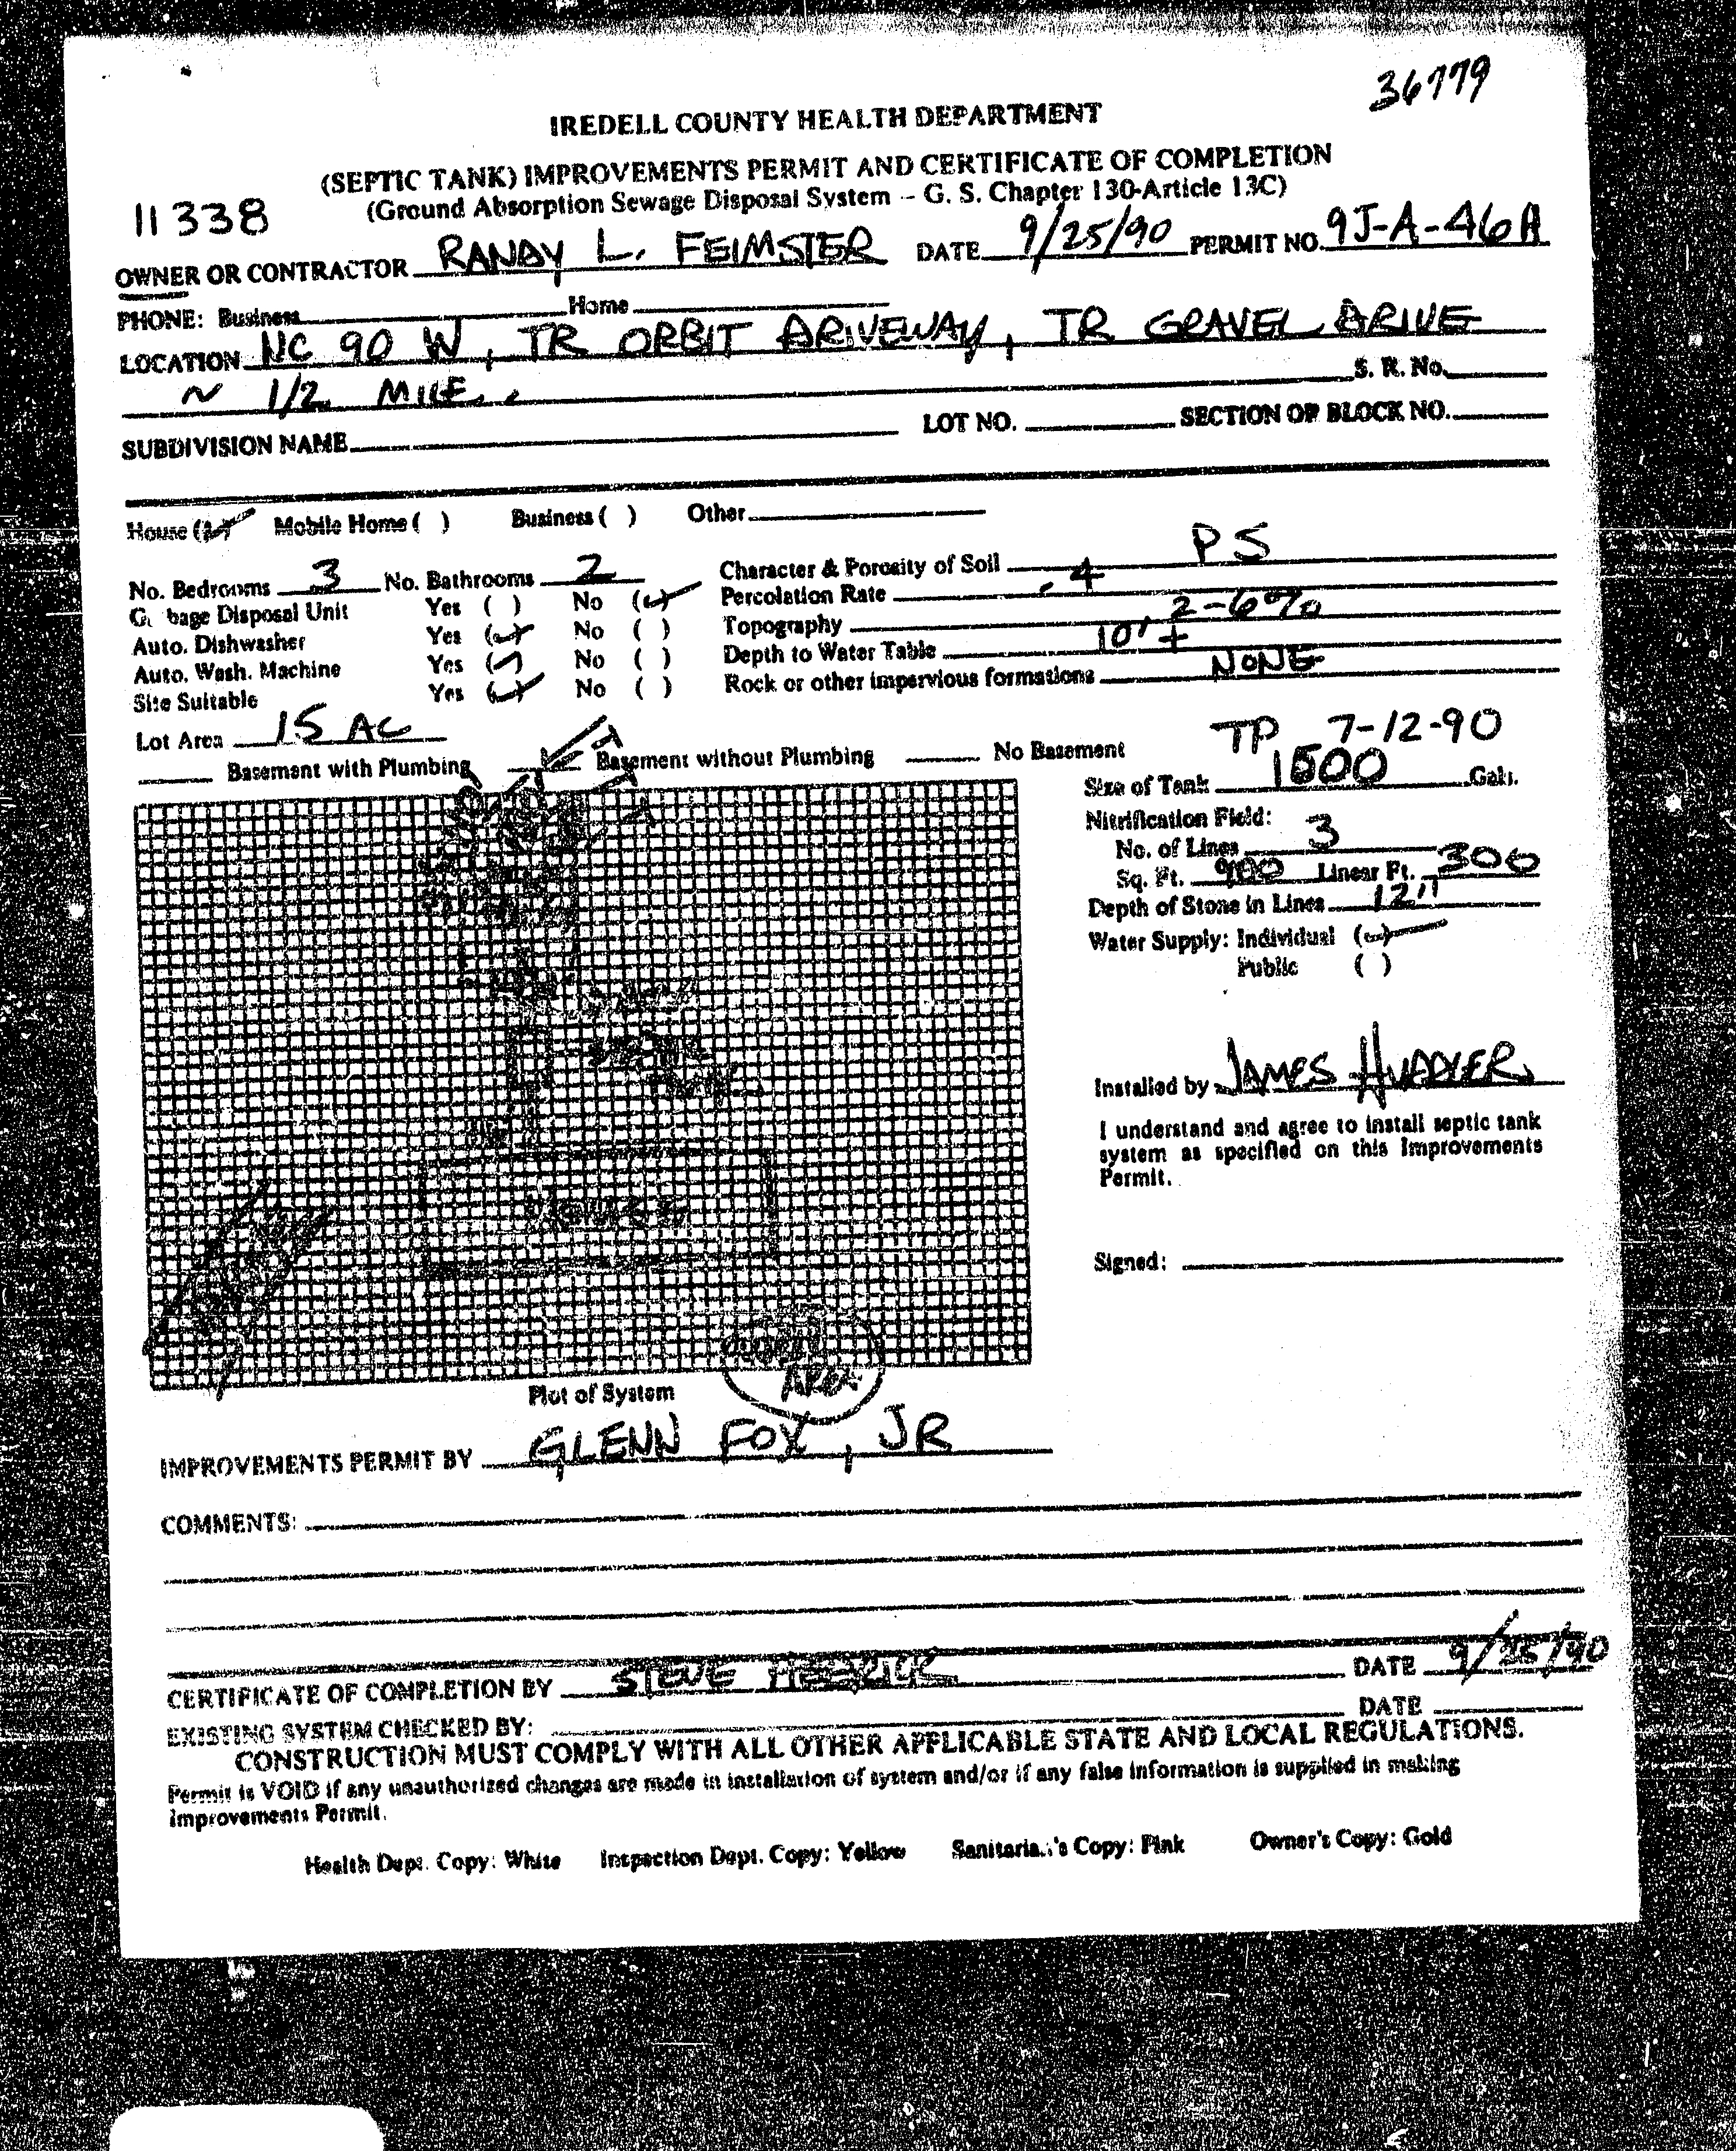 36779
IREDELL COUNTY HEALTH DEPARTMENT
(SEPTIC TANK) IMPROVEMENTS PERMIT AND CERTIFICATE OF COMPLETION
(Ground Absorption Sewage Disposal System -- G. S. Chapter 130-Article 13C)
11338
OWNER OR CONTRACTOR RANDY L. FEIMSTER DATE 9/25/90 PERMIT NO. 9J-A-46A
PHONE: Business Home
LOCATION NC 90 W, TR ORBIT DRIVEWAY, TR GRAVEL DRIVE
~ 1/2 MILE. S. R. No.
SUBDIVISION NAME LOT NO. SECTION OR BLOCK NO.
House (✓) Mobile Home ( ) Business ( ) Other
No. Bedrooms 3 No. Bathrooms 2 Character & Porosity of Soil PS
Garbage Disposal Unit Yes ( ) No (✓) Percolation Rate .4
Auto. Dishwasher Yes (✓) No ( ) Topography 2-6%
Auto. Wash. Machine Yes (✓) No ( ) Depth to Water Table 10'+
Site Suitable Yes (✓) No ( ) Rock or other impervious formations NONE
Lot Area 15 AC
TP 7-12-90
Basement with Plumbing ✓ Basement without Plumbing No Basement
Size of Tank 1500 Gals.
Nitrification Field:
No. of Lines 3
Sq. Ft. 900 Linear Ft. 300
Depth of Stone in Lines 12"
Water Supply: Individual (✓)
Public ( )
Installed by JAMES
I understand and agree to install septic tank
system as specified on this Improvements
Permit.
HOUSE
Signed:
AREA
Plot of System
IMPROVEMENTS PERMIT BY GLENN FOX, JR
COMMENTS:
CERTIFICATE OF COMPLETION BY STEVE DATE 9/25/90
EXISTING SYSTEM CHECKED BY: DATE
CONSTRUCTION MUST COMPLY WITH ALL OTHER APPLICABLE STATE AND LOCAL REGULATIONS.
Permit is VOID if any unauthorized changes are made in installation of system and/or if any false information is supplied in making
Improvements Permit.
Health Dept. Copy: White Inspection Dept. Copy: Yellow Sanitarian's Copy: Pink Owner's Copy: Gold